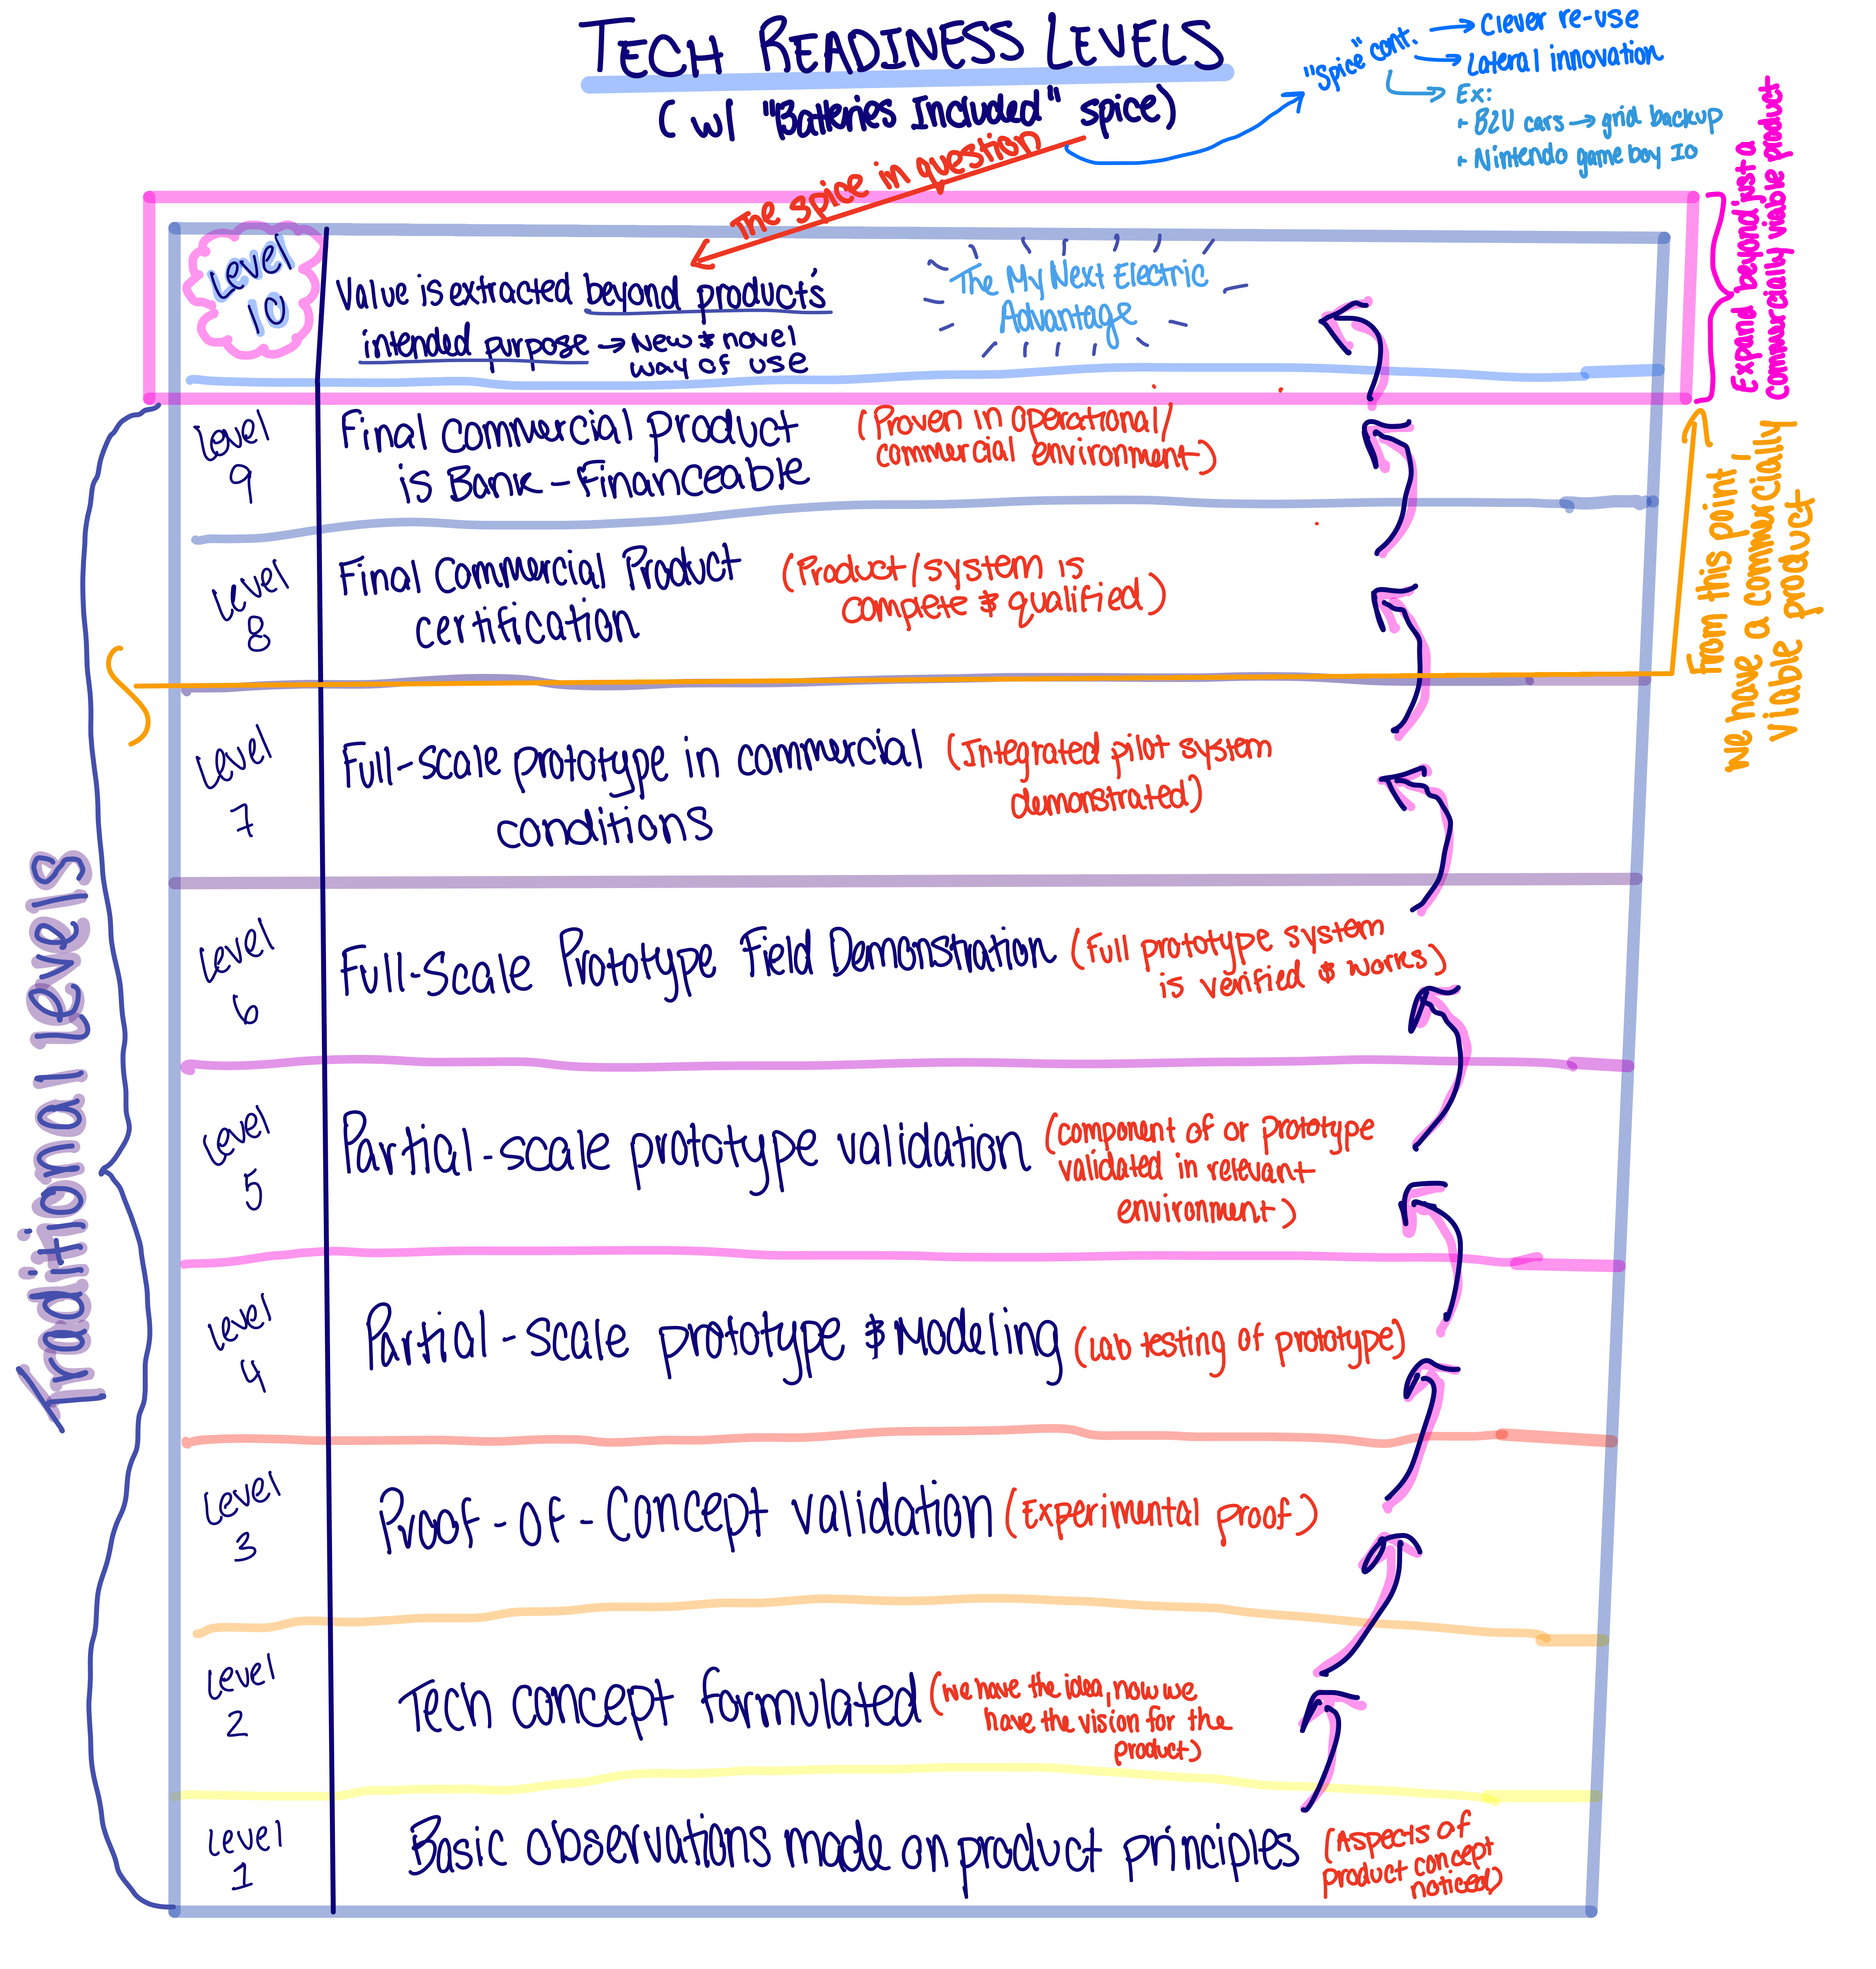 TECH READINESS LEVELS
(w/ "Batteries Included" spice)
"Spice" cont.
Clever re-use
Lateral innovation
Ex:
- B2U cars → grid backup
- Nintendo gameboy IO
The spice in question
Expand beyond just a
commercially viable product
Level
10
Value is extracted beyond products'
intended purpose → New & novel
way of use
The My Next Electric
Advantage
Level
9
Final Commercial Product
is Bank-Financeable
(Proven in operational/
commercial environment)
From this point
we have a commercially
viable product
Level
8
Final Commercial Product
certification
(Product/system is
complete & qualified)
Level
7
Full-scale prototype in commercial
conditions
(Integrated pilot system
demonstrated)
Traditional levels
Level
6
Full-Scale Prototype Field Demonstration
(full prototype system
is verified & works)
Level
5
Partial-scale prototype validation
(component of or prototype
validated in relevant
environment)
Level
4
Partial-scale prototype & Modeling
(Lab testing of prototype)
Level
3
Proof-of-Concept validation
(Experimental proof)
Level
2
Tech concept formulated
(we have the idea, now we
have the vision for the
product)
Level
1
Basic observations made on product principles
(Aspects of
product concept
noticed)